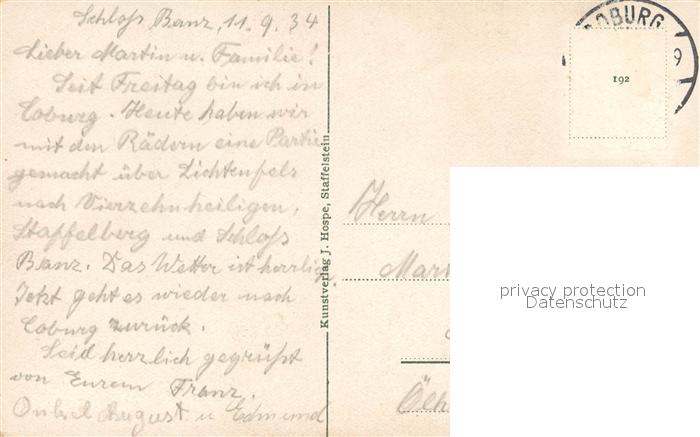 Schloß Banz, 11.9.34
Lieber Martin u. Familie!
Seit Freitag bin ich in
Coburg. Heute haben wir
mit den Rädern eine Partie
gemacht über Lichtenfels
nach Vierzehnheiligen,
Staffelberg und Schloß
Banz. Das Wetter ist herrlich.
Jetzt geht es wieder nach
Coburg zurück.
Seid herzlich gegrüßt
von Eurem Franz.
Onkel August u Edmund
Kunstverlag J. Hospe, Staffelstein
COBURG
9
192
Herrn
Mar
Ölh
privacy protection
Datenschutz